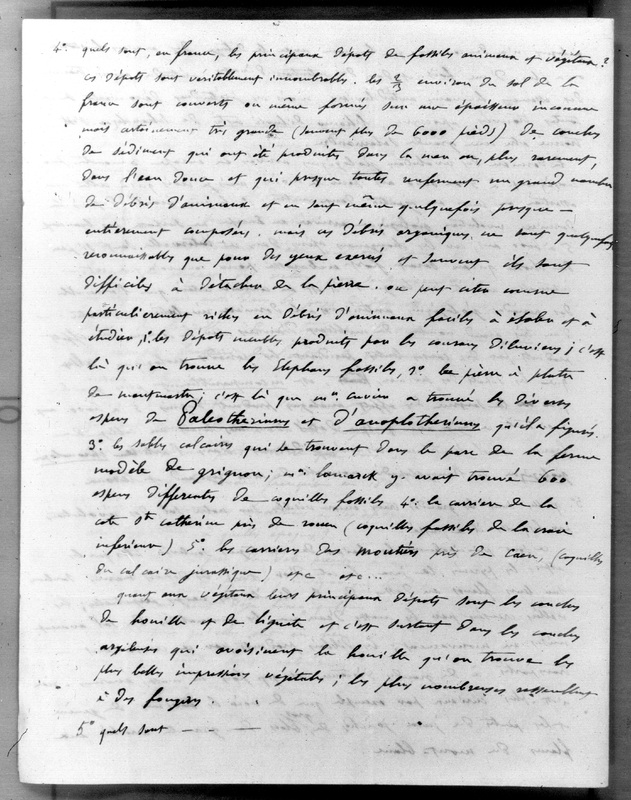 4° quels sont, en france, les principaux dépots de fossiles animaux et végétaux ?
ces dépots sont veritablement innombrables. les 2/3 environ du sol de la
france sont couverts ou même formés sur une épaisseur inconnue
mais certainement très grande (souvent plus de 6000 pieds) de couches
de sédiment qui ont été produits dans la mer ou, plus rarement,
dans l'eau douce et qui presque toutes renferment un grand nombre
de débris d'animaux et en sont même quelquefois presque –
entièrement composées. mais ces débris organiques ne sont quelquefois
reconnaissables que pour des yeux exercés et souvent ils sont
difficiles à détacher de la pierre. on peut citer comme
particulierement riches en débris d'animaux faciles à isoler et à
étudier, 1° les dépots meubles produits par les courans diluviens ; c'est
là qu'on trouve les Eléphans fossiles, 2° la pierre à platre
de montmartre ; c'est là que mr. cuvier a trouvé les diverses
espèces de Paleotheriums et d'anoplotheriums qu'il a figurés.
3° les sables calcaires qui se trouvent dans le parc de la ferme
modèle de grignon ; mr. lamarck y avait trouvé 600
espèces différentes de coquilles fossiles 4° la carriere de la
cote Ste catherine près de rouen (coquilles fossiles de la craie
inférieure) 5° les carrières des moutiers près de Caen, (coquilles
du calcaire jurassique) etc etc...
quant aux végétaux leurs principaux dépots sont les couches
de houille et de lignite et c'est surtout dans les couches
argileuses qui avoisinent la houille qu'on trouve les
plus belles impressions végétales ; les plus nombreuses ressemblent
à des fougères.
5° quels sont – – –